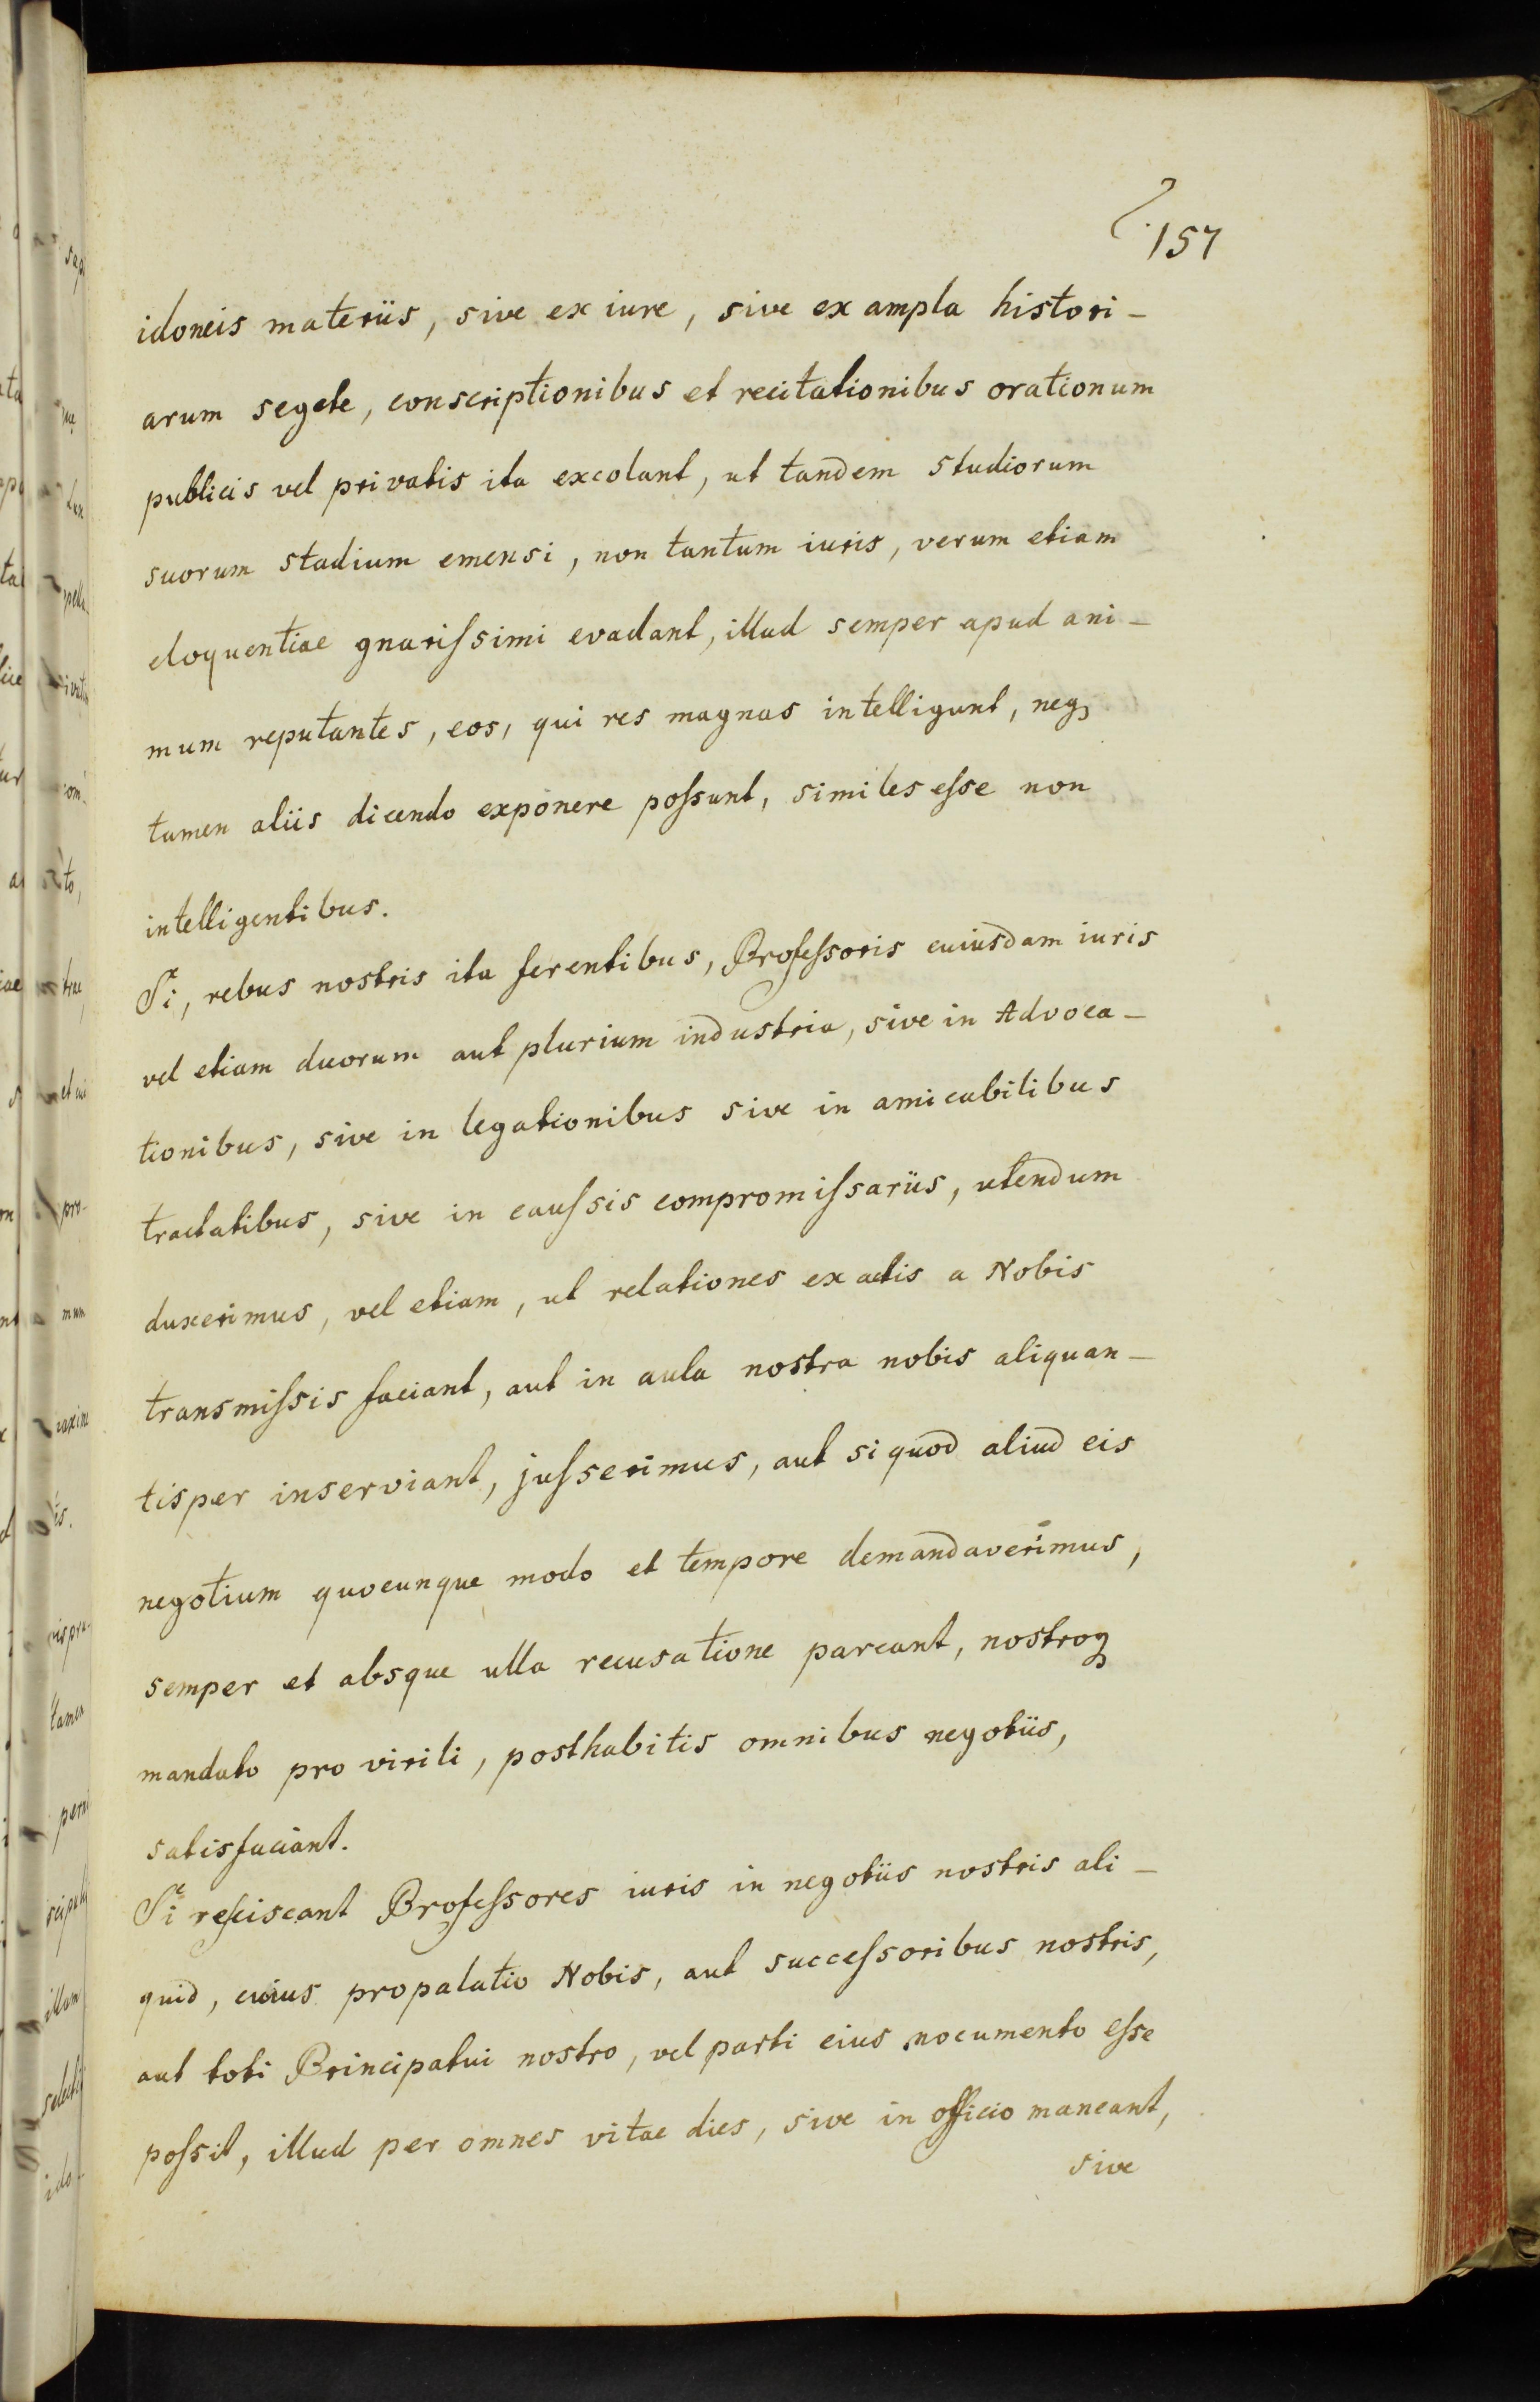 157
idoneis materiis, sive ex iure, sive ex ampla histori-
arum segete, conscriptionibus et recitationibus orationum
publicis vel privatis ita excolant, ut tandem studiorum
suorum stadium emensi, non tantum iuris, verum etiam
eloquentiae gnariſsimi evadant, illud semper apud ani-
mum reputantes, eos, qui res magnas intelligunt, neqꝫ
tamen aliis dicendo exponere poſsunt, similes eſse non
intelligentibus.
Si, rebus nostris ita ferentibus, Profeſsoris cuiusdam iuris
vel etiam duorum aut plurium industria, sive in Advoca-
tionibus, sive in legationibus sive in amicabilibus
tractatibus, sive in cauſsis compromiſsariis, utendum
duxerimus, vel etiam, ut relationes ex actis a Nobis
transmiſsis faciant, aut in aula nostra nobis aliquan-
tisper inserviant, juſserimus, aut si quod aliud eis
negotium quocunque modo et tempore demandaverimus,
semper et absque ulla recusatione pareant, nostroqꝫ
mandato pro virili, posthabitis omnibus negotiis,
satisfaciant.
Si reſciscant Profeſsores iuris in negotiis nostris ali-
quid, cuius propalatio Nobis, aut succeſsoribus nostris,
aut toti Principatui nostro, vel parti eius nocumento eſse
poſsit, illud per omnes vitae dies, sive in officio maneant,
sive